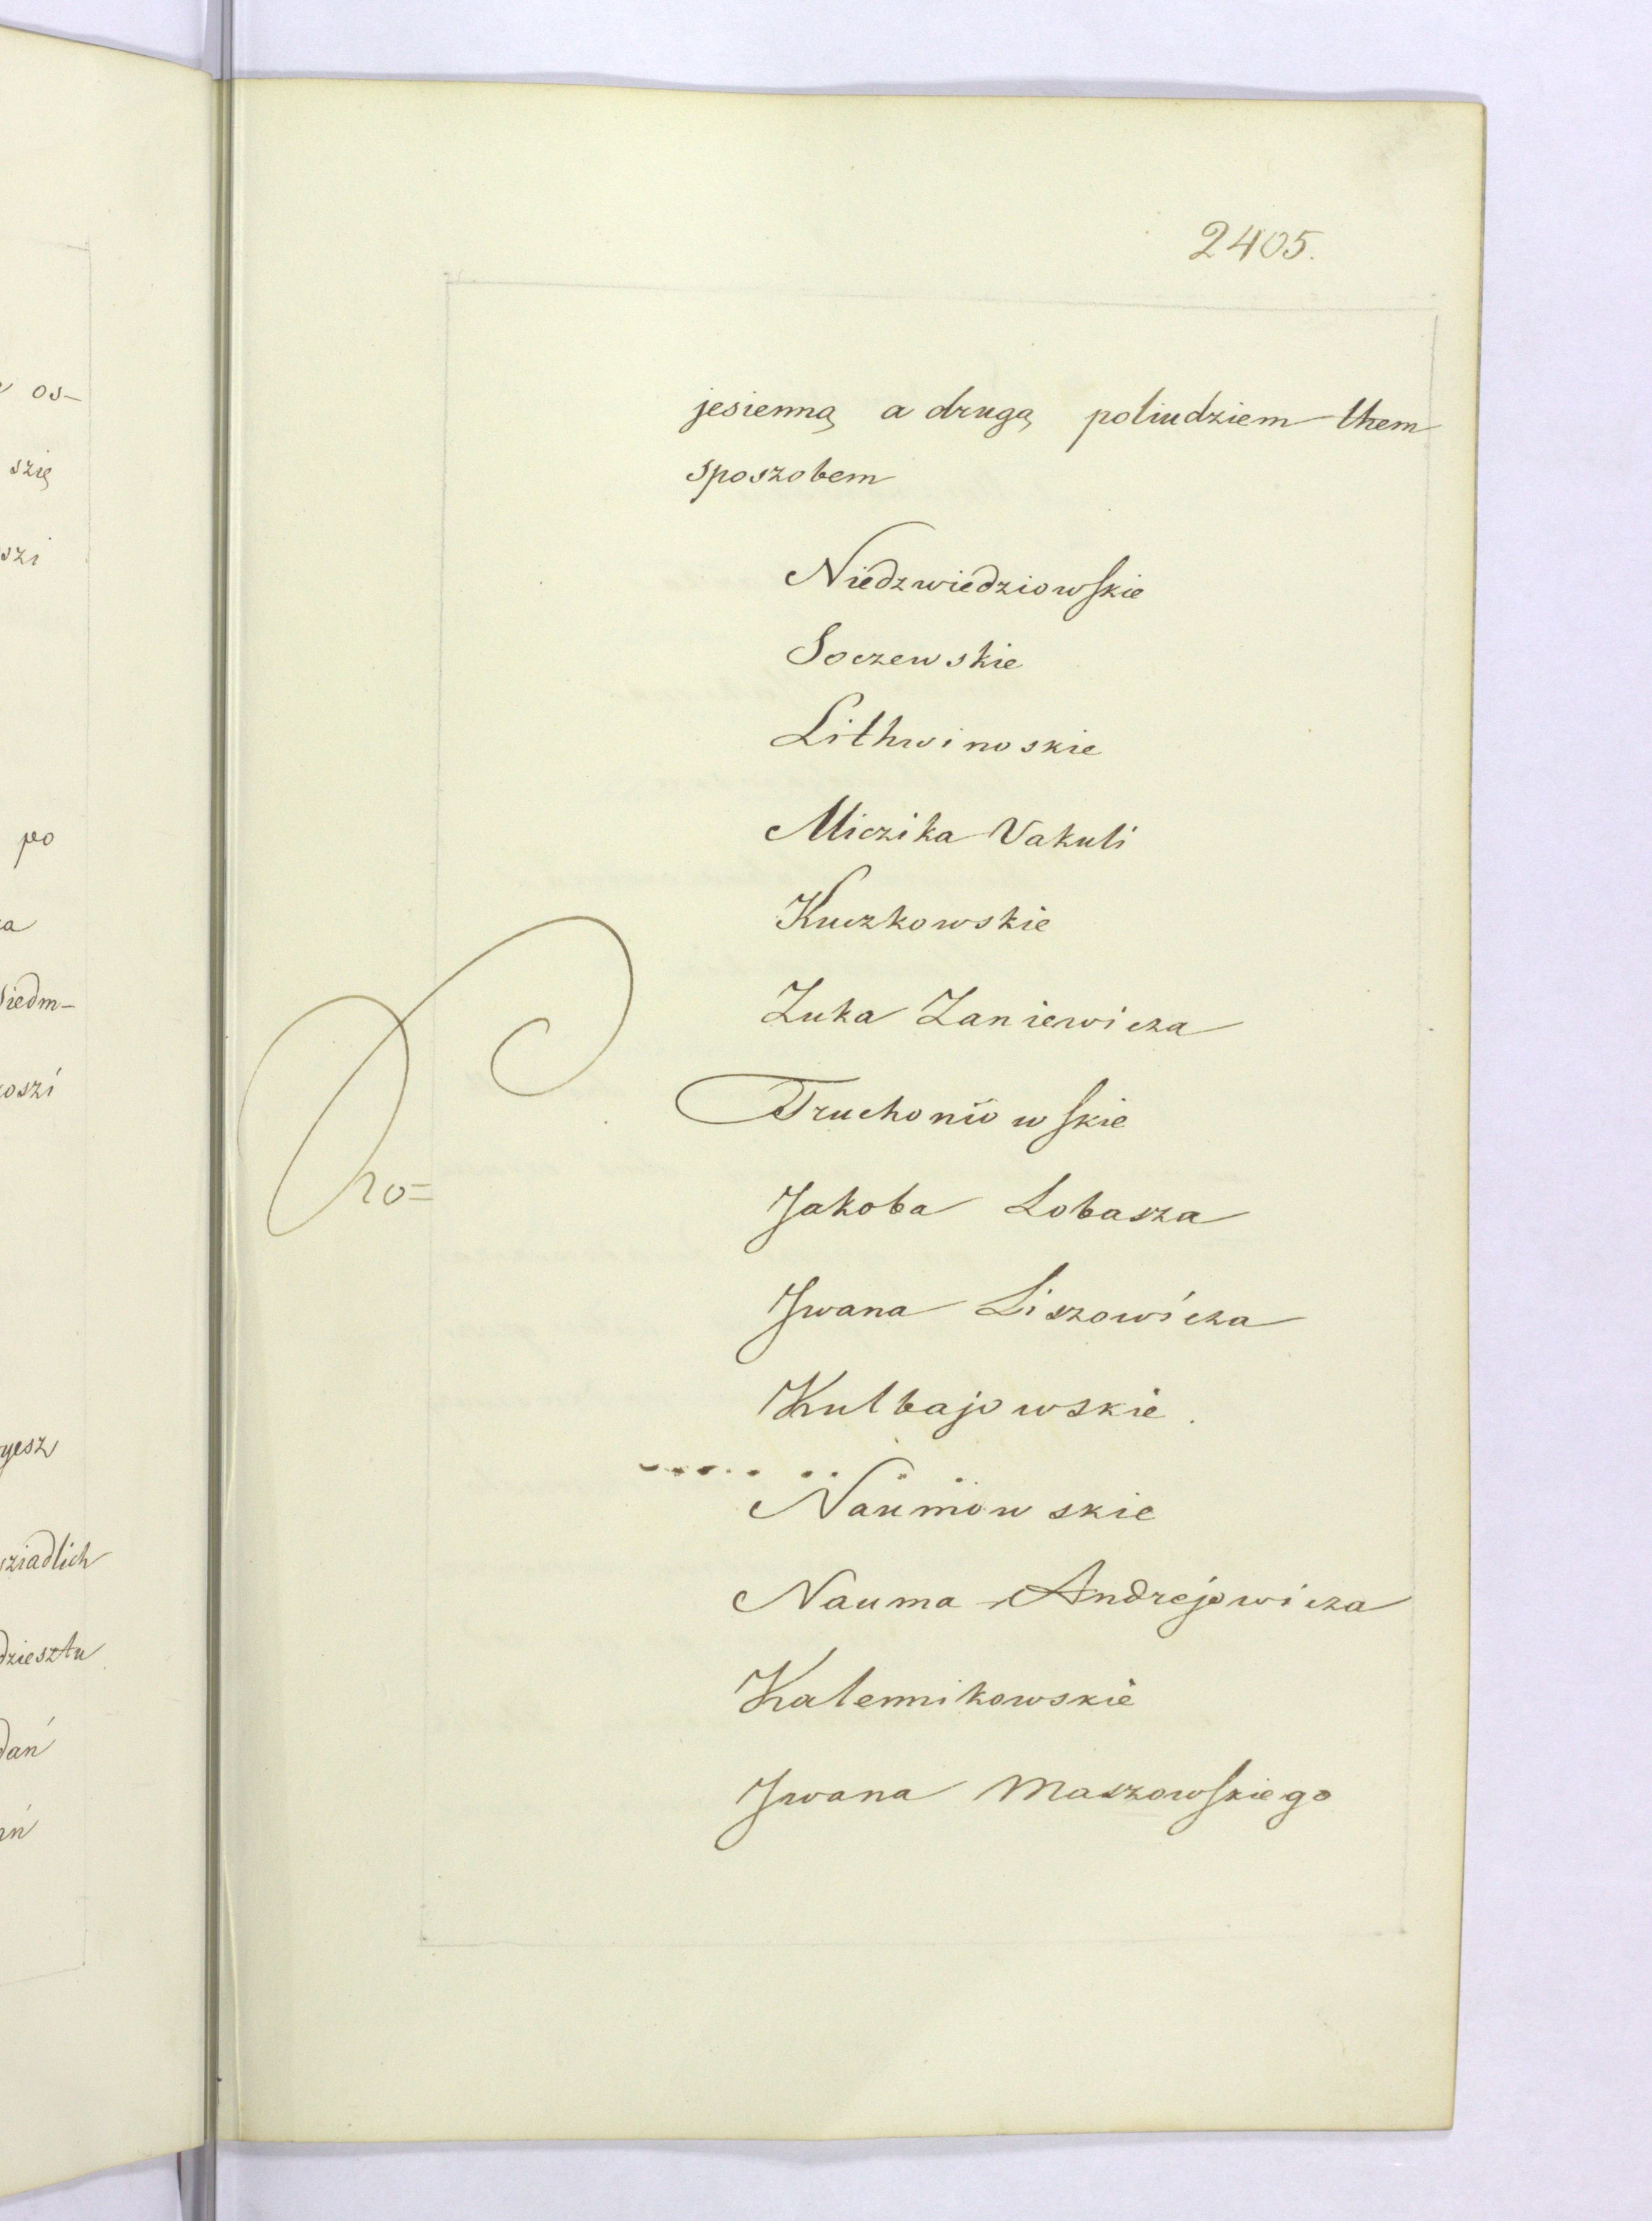 os-
szię
szi
po
a
siedm-
koszí
yesz
sziadlich
dziesztu
dań
ań
2405.
jesienną a drugą poliudziem them
sposzobem
Niedzwiedziowskie
Soczewskie
Lithwinoskie
Miczika Vakuli
Kuczkowskie
Zuka Zaniewicza
Truchoniowskie
Jakoba Lobasza
Pro=
Jwana Liszowícza
Kulbajowskie.
Naumowskie
Nauma Andrejowicza
Kalennikowskie
Jwana Maszowskiego